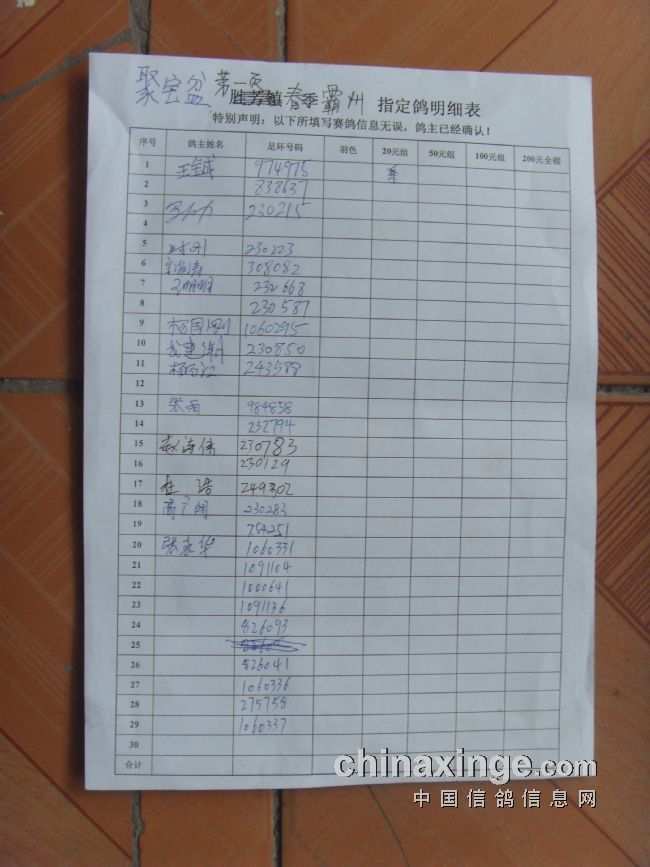 聚宝盆 第一页
胜芳镇 春季 霸州 指定鸽明细表
特别声明：以下所填写赛鸽信息无误，鸽主已经确认！
序号 鸽主姓名 足环号码 羽色 20元组 50元组 100元组 200元全棚
1 974975
2 838637
3 230215
4
5 230223
6 308082
7 232668
8 230587
9 杨国刚 1060295
10 230850
11 243588
12
13 张雨 984858
14 232794
15 230783
16 230129
17 杜浩 249302
18 高广阔 230283
19 754251
20 张永华 1060331
21 1091104
22 1000641
23 1091136
24 826093
25
26 826041
27 1060336
28 275758
29 1060337
30
合计
chinaxinge.com
中国信鸽信息网